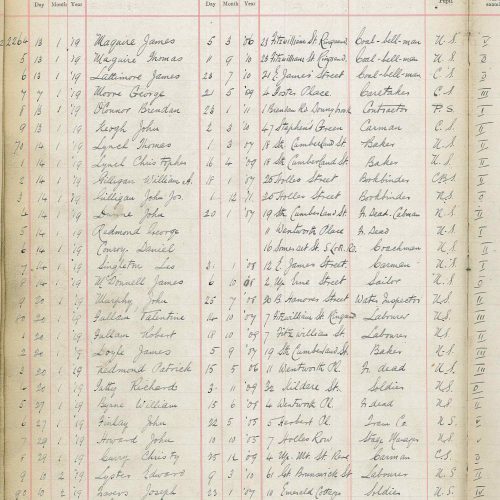 Day Month Year Day Month Year Pupil
2264 13 1 '19 Maguire James 5 3 '06 28 Fitzwilliam St. Ringsend Coal-bell-man N.S. V
5 13 1 '19 Maguire Thomas 1 9 '10 28 Fitzwilliam St. Ringsend Coal-bell-man N.S.
6 13 1 '19 Lattimore James 23 7 '10 21 E. James Street Coal-bell-man C.S.
7 7 1 '19 Moore George 21 5 '09 4 Foster Place Caretaker C.S.
8 13 1 '19 O'Connor Brendan 23 1 '11 1 Brendan Rd Donnybrook Contractor P.S.
9 13 1 '19 Keogh John 2 3 '10 47 Stephen's Green Carman C.S.
70 14 1 '19 Lynch Thomas 1 3 '07 18 Sth Cumberland St Baker N.S.
1 14 1 '19 Lynch Christopher 16 4 '09 18 Sth Cumberland St. Baker N.S.
2 14 1 '19 Gilligan William A. 18 1 '07 20 Holles Street Bookbinder C.B.S.
3 14 1 '19 Gilligan John Jos. 1 12 '11 20 Holles Street Bookbinder N.S.
4 14 1 '19 John 20 1 '07 19 Sth Cumberland St. Fr. Dead. Cabman N.S.
5 14 1 '19 Redmond George 11 Wentworth Place Fr. Dead N.S.
6 14 1 '19 Conroy Daniel 16 Somerset St. Coachman N.S.
7 14 1 '19 Singleton Les 3 1 '08 12 E. James Street Carman N.S.
8 14 1 '19 McDonnell James 6 10 '08 2 Up. Erne Street Sailor N.S.
9 20 1 '19 Murphy John 25 7 '08 20 B Hanover Street Water Inspector N.S.
80 20 1 '19 Fallain Valentine 14 10 '07 7 Fitzwilliam St Ringsend Labourer N.S.
1 20 1 '19 Fallain Robert 18 10 '09 7 Fitzwilliam St. Labourer N.S.
2 20 1 '19 Doyle James 5 9 '07 19 Sth Cumberland St. Baker N.S.
3 20 1 '19 Redmond Patrick 15 5 '06 11 Wentworth Pl. Fr. dead N.S.
4 20 1 '19 Richard 3 11 '09 32 Kildare St. Soldier N.S.
5 27 1 '19 Byrne William 15 6 '08 4 Wentworth Pl. Fr. dead N.S.
6 27 1 '19 Finlay John 22 5 '05 5 Herbert Pl. Tram Co. N.S.
7 29 1 '19 Howard John 10 10 '05 7 Holles Row Stage Manager N.S.
8 29 1 '19 Christy 25 12 '09 4 Up. Mt St Row Carman C.S.
9 10 2 '19 Lyster Edward 9 3 '10 61 Gt Brunswick St Labourer N.S.
90 2 '19 Joseph 23 1 '07 10 Emerald Cottages Soldier N.S.